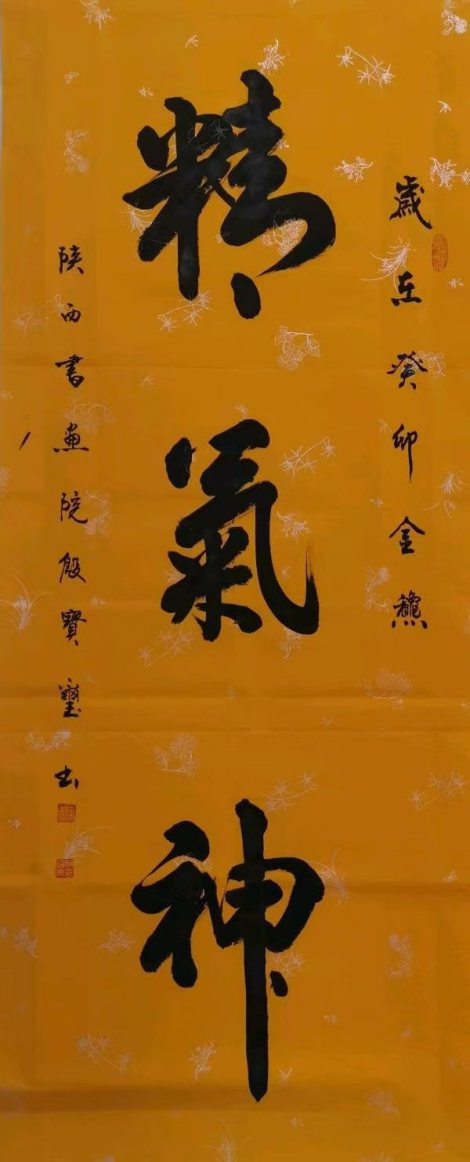 歲在癸卯金龝
精氣神
陕西書畫院殷寶璽书